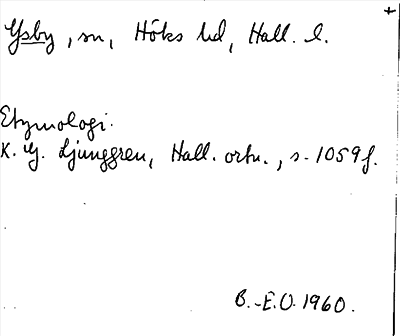 Ysby, sn, Höks hd, Hall. l.
Etymologi.
K. G. Ljunggren, Hall. ortn., s. 1059f.
B.-E.O. 1960.